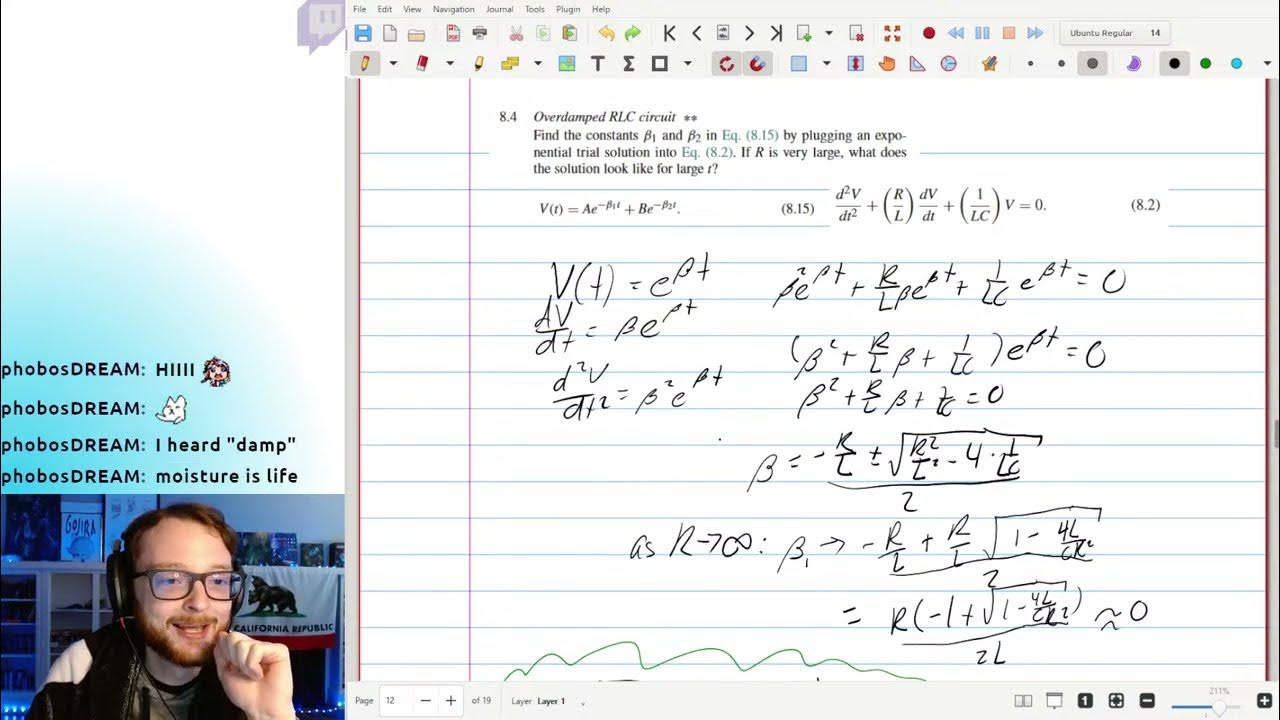 File Edit View Navigation Journal Tools Plugin Help
Ubuntu Regular 14
8.4 Overdamped RLC circuit **
Find the constants β₁ and β₂ in Eq. (8.15) by plugging an expo-
nential trial solution into Eq. (8.2). If R is very large, what does
the solution look like for large t?
V(t) = Ae^{-β₁t} + Be^{-β₂t}. (8.15)
d²V/dt² + (R/L) dV/dt + (1/LC) V = 0. (8.2)
V(t) = e^{βt}
dV/dt = βe^{βt}
d²V/dt² = β²e^{βt}
β²e^{βt} + R/L βe^{βt} + 1/LC e^{βt} = 0
(β² + R/L β + 1/LC) e^{βt} = 0
β² + R/L β + 1/LC = 0
β = (-R/L ± √(R²/L² - 4 · 1/LC)) / 2
as R → ∞: β₁ → (-R/L + R/L √(1 - 4L/CR²)) / 2
= R(-1 + √(1 - 4L/CR²)) / 2L ≈ 0
phobosDREAM: HIIII
phobosDREAM:
phobosDREAM: I heard "damp"
phobosDREAM: moisture is life
GOJIRA
CALIFORNIA REPUBLIC
Page 12 of 19 Layer Layer 1
211%